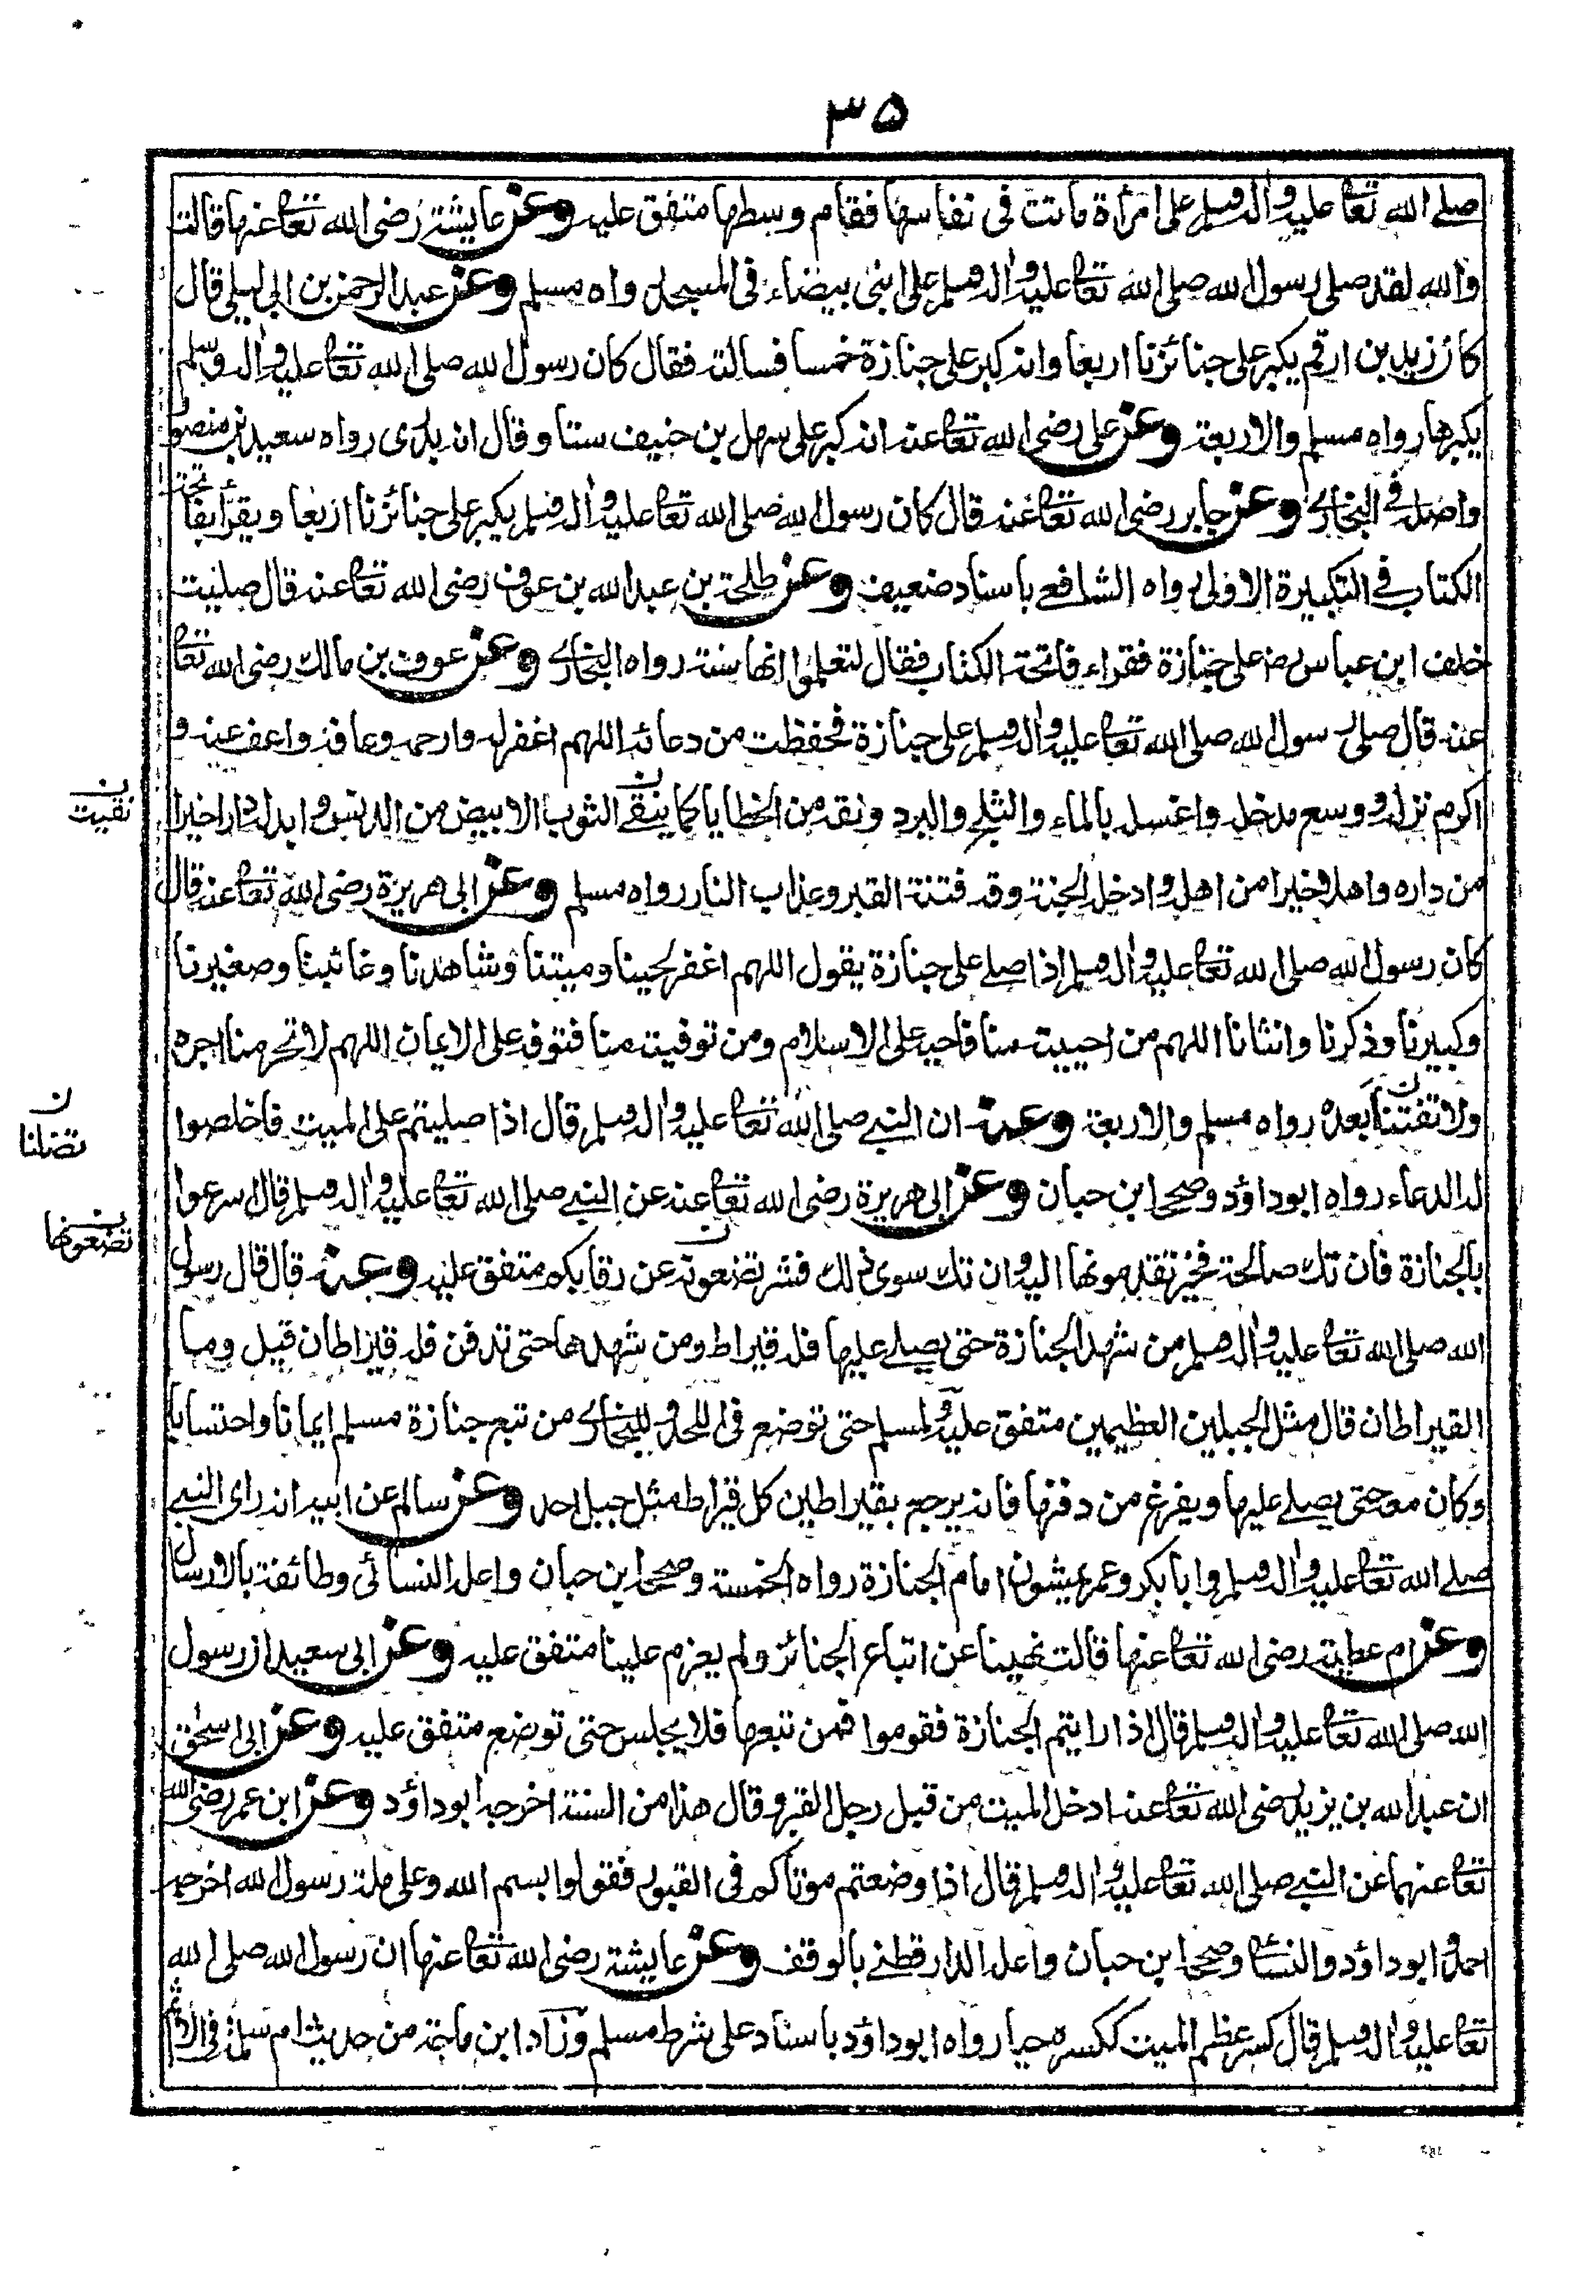 ٣٥
صلے الله تعالٰى عليه واٰله وسلم على امرأة ماتت فى نفاسها فقام وسطها متفق عليه وعن عايشة رضى الله تعالٰى عنها قالت
والله لقد صلى رسول الله صلى الله تعالٰى عليه واٰله وسلم على ابنى بيضاء فى المسجد رواه مسلم وعن عبد الرحمن بن ابى ليلى قال
كان زيد بن ارقم يكبر على جنائزنا اربعا وانه كبر على جنازة خمسا فسالته فقال كان رسول الله صلى الله تعالٰى عليه واٰله وسلم
يكبرها رواه مسلم والاربعة وعن على رضى الله تعالٰى عنه انه كبر على سهل بن حنيف ستا وقال انه بدرى رواه سعيد بن منصور
واصله فى البخارى وعن جابر رضى الله تعالٰى عنه قال كان رسول الله صلى الله تعالٰى عليه واٰله وسلم يكبر على جنائزنا اربعا ويقرأ بفاتحة
الكتاب فى التكبيرة الاولى رواه الشافعے باسناد ضعيف وعن طلحة بن عبد الله بن عوف رضى الله تعالٰى عنه قال صليت
خلف ابن عباس رضـ على جنازة فقراء فاتحة الكتاب فقال لتعلموا انها سنة رواه البخارى وعن عوف بن مالك رضى الله تعالٰى
عنه قال صلى رسول الله صلى الله تعالٰى عليه واٰله وسلم على جنازة فحفظت من دعائه اللهم اغفر له وارحمه وعافه واعف عنه و
اكرم نزله ووسع مدخله واغسله بالماء والثلج والبرد ونقه من الخطايا كما ينقے الثوب الابيض من الدنس وابدله دارا خيرا
ن نقيت
من داره واهلا خيرا من اهله وادخله الجنة وقه فتنة القبر وعذاب النار رواه مسلم وعن ابى هريرة رضى الله تعالٰى عنه قال
كان رسول الله صلى الله تعالٰى عليه واٰله وسلم اذا صلے على جنازة يقول اللهم اغفر لحينا وميتنا وشاهدنا وغائبنا وصغيرنا
وكبيرنا وذكرنا وانثانا اللهم من احييته منا فاحيه على الاسلام ومن توفيته منا فتوفه على الايمان اللهم لا تحرمنا اجره
ولا تفتنا بعده رواه مسلم والاربعة وعنه ان النبے صلى الله تعالٰى عليه واٰله وسلم قال اذا صليتم على الميت فاخلصوا
ن تضلنا
له الدعاء رواه ابو داؤد وصححه ابن حبان وعن ابى هريرة رضى الله تعالٰى عنه عن النبے صلى الله تعالٰى عليه واٰله وسلم قال اسرعوا
ن تضعونها
بالجنازة فان تك صالحة فخير تقدمونها اليه وان تك سوى ذلك فشر تضعونه عن رقابكم متفق عليه وعنه قال قال رسول
الله صلى الله تعالٰى عليه واٰله وسلم من شهد الجنازة حتى يصلے عليها فله قيراط ومن شهدها حتى تدفن فله قيراطان قيل وما
القيراطان قال مثل الجبلين العظيمين متفق عليه ولمسلم حتى توضع فى اللحد وللبخارى من تبع جنازة مسلم ايمانا واحتسابا
وكان معه حتى يصلے عليها ويفرغ من دفنها فانه يرجع بقيراطين كل قيراط مثل جبل احد وعن سالم عن ابيه انه راى النبے
صلے الله تعالٰى عليه واٰله وسلم وابا بكر وعمر يمشون امام الجنازة رواه الخمسة وصححه ابن حبان واعله النسائى وطائفة بالارسال
وعن ام عطية رضى الله تعالٰى عنها قالت نهينا عن اتباع الجنائز ولم يعزم علينا متفق عليه وعن ابى سعيد ان رسول
الله صلى الله تعالٰى عليه واٰله وسلم قال اذا رايتم الجنازة فقوموا فمن تبعها فلا يجلس حتى توضع متفق عليه وعن ابى اسحٰق
ان عبد الله بن يزيد رضى الله تعالٰى عنه ادخل الميت من قبل رجل القبر وقال هذا من السنة اخرجه ابو داؤد وعن ابن عمر رضى الله
تعالٰى عنهما عن النبے صلى الله تعالٰى عليه واٰله وسلم قال اذا وضعتم موتاكم فى القبور فقولوا بسم الله وعلى ملة رسول الله اخرجه
احمد وابو داؤد والنسائى وصححه ابن حبان واعله الدارقطنے بالوقف وعن عايشة رضى الله تعالٰى عنها ان رسول الله صلى الله
تعالٰى عليه واٰله وسلم قال كسر عظم الميت ككسره حيا رواه ابو داؤد باسناد على شرط مسلم وزاد ابن ماجة من حديث ام سلمة فى الاثم